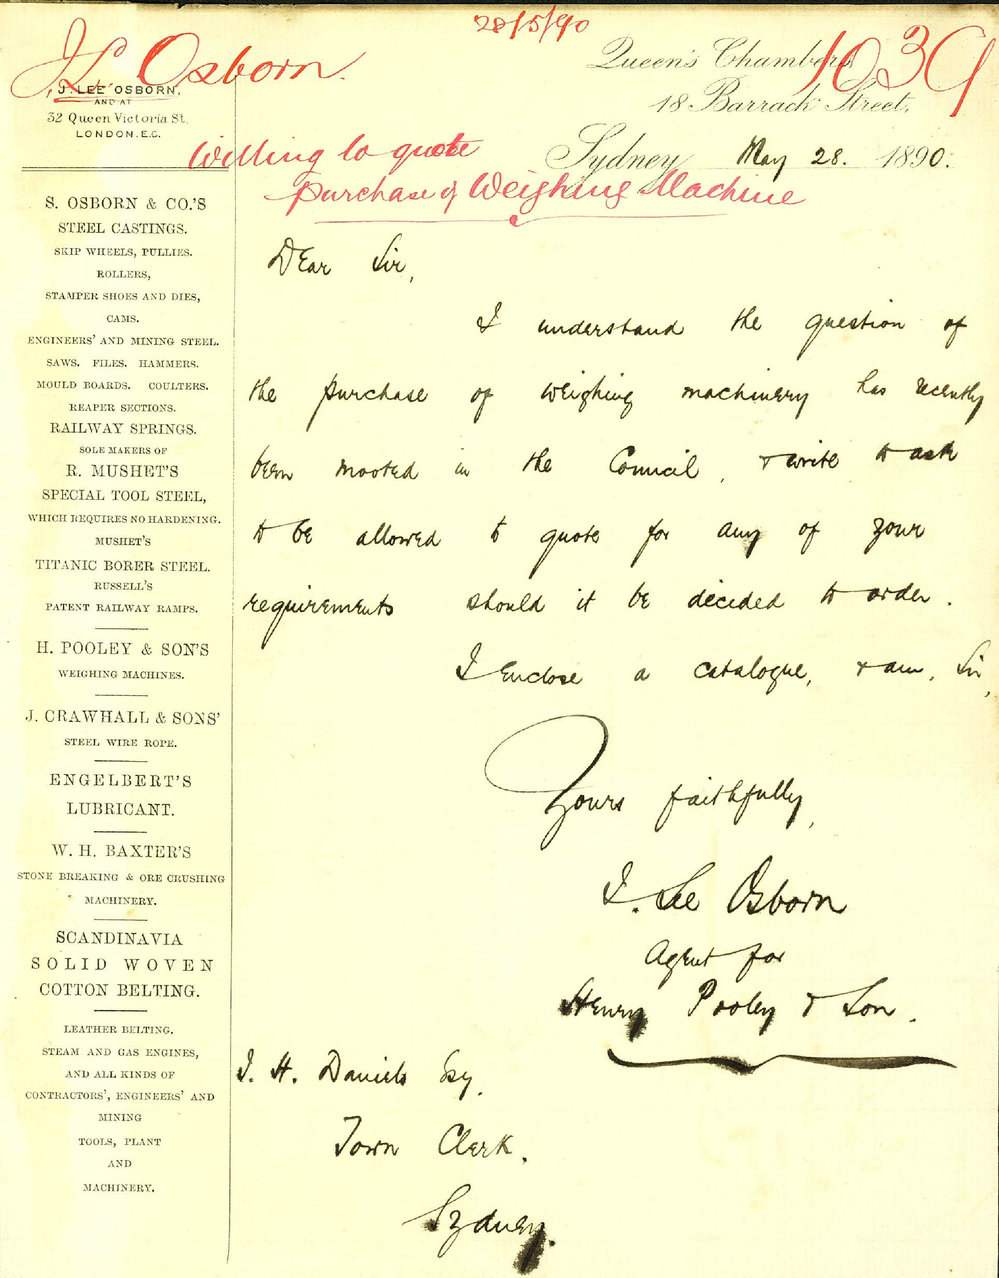 28/5/90
J L Osborn.
1039
J. LEE OSBORN,
AND AT
32 Queen Victoria St.
LONDON. E.C.
Queen's Chambers
18 Barrack Street,
Sydney May 28. 1890.
Willing to quote
purchase of Weighing Machine
S. OSBORN & CO.'S
STEEL CASTINGS.
SKIP WHEELS, PULLIES.
ROLLERS,
STAMPER SHOES AND DIES,
CAMS.
ENGINEERS' AND MINING STEEL.
SAWS. FILES. HAMMERS.
MOULD BOARDS. COULTERS.
REAPER SECTIONS.
RAILWAY SPRINGS.
SOLE MAKERS OF
R. MUSHET'S
SPECIAL TOOL STEEL,
WHICH REQUIRES NO HARDENING.
MUSHET'S
TITANIC BORER STEEL.
RUSSELL'S
PATENT RAILWAY RAMPS.
H. POOLEY & SON'S
WEIGHING MACHINES.
J. CRAWHALL & SONS'
STEEL WIRE ROPE.
ENGELBERT'S
LUBRICANT.
W. H. BAXTER'S
STONE BREAKING & ORE CRUSHING
MACHINERY.
SCANDINAVIA
SOLID WOVEN
COTTON BELTING.
LEATHER BELTING.
STEAM AND GAS ENGINES,
AND ALL KINDS OF
CONTRACTORS', ENGINEERS' AND
MINING
TOOLS, PLANT
AND
MACHINERY.
Dear Sir,
I understand the question of
the purchase of weighing machinery has recently
been mooted in the Council, & write to ask
to be allowed to quote for any of your
requirements should it be decided to order.
I enclose a catalogue, & am, Sir,
Yours faithfully,
J. Lee Osborn
Agent for
Henry Pooley & Son.
J. H. Daniels Esq.
Town Clerk.
Sydney.